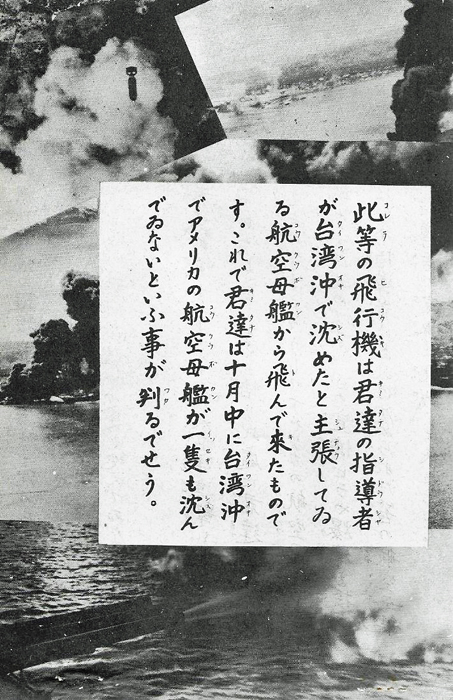 此等の飛行機は君達の指導者
が台湾沖で沈めたと主張してゐ
る航空母艦から飛んで來たもので
す。これで君達は十月中に台湾沖
でアメリカの航空母艦が一隻も沈ん
でゐないといふ事が判るでせう。